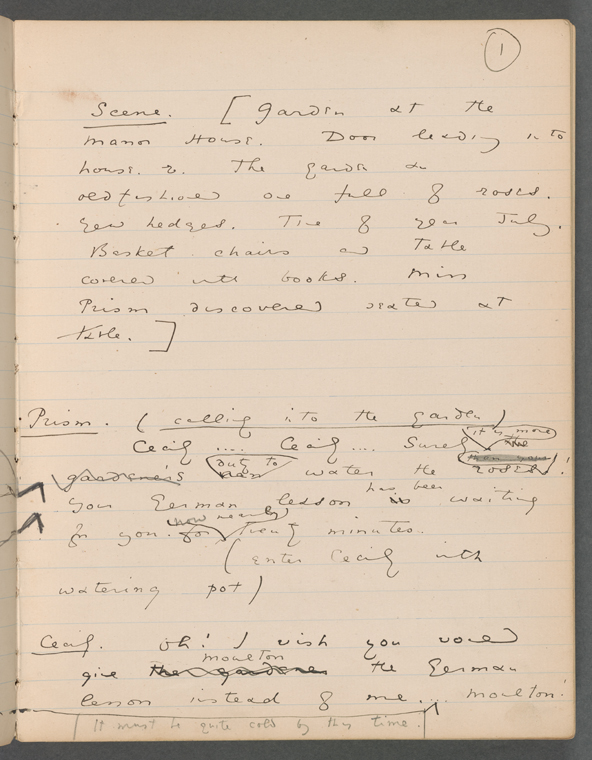 1
Scene. [Garden at the
Manor House. Door leading into
house. R. The garden an
oldfashioned one full of roses.
Yew hedges. Time of year July.
Basket chairs and Table
covered with books. Miss
Prism discovered seated at
table.]
Prism. (calling into the garden)
it is more
Cecily .... Cecily .... Surely the
duty to
gardener's water the roses!
has been
your German lesson is waiting
now nearly
for you. for twenty minutes.
(Enter Cecily with
watering pot)
Cecily. Oh! I wish you would
Moulton
give the gardener the German
lesson instead of me... Moulton!
It must be quite cold by this time.